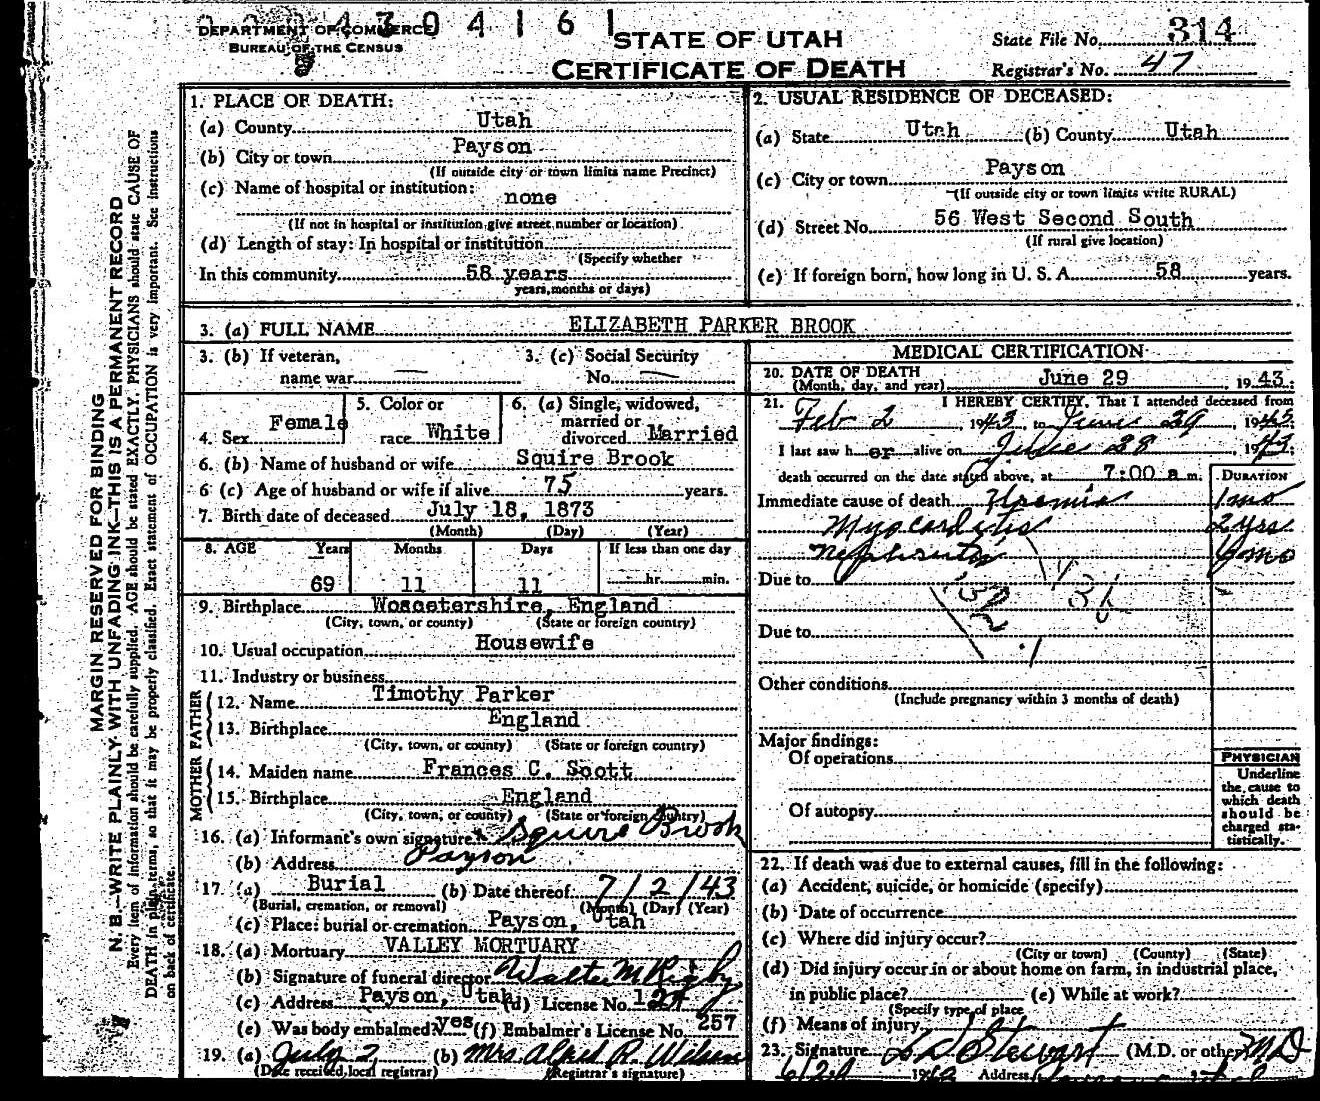 DEPARTMENT OF COMMERCE
BUREAU OF THE CENSUS
4 1 6 1
STATE OF UTAH
CERTIFICATE OF DEATH
State File No. 314
Registrar's No. 47
MARGIN RESERVED FOR BINDING
N. B.—WRITE PLAINLY WITH UNFADING INK—THIS IS A PERMANENT RECORD
Every item of information should be carefully supplied. AGE should be stated EXACTLY. PHYSICIANS should state CAUSE OF
DEATH in plain terms, so that it may be properly classified. Exact statement of OCCUPATION is very important. See instructions
on back of certificate.
1. PLACE OF DEATH:
(a) County Utah
(b) City or town Payson
(If outside city or town limits name Precinct)
(c) Name of hospital or institution:
none
(If not in hospital or institution give street number or location)
(d) Length of stay: In hospital or institution
(Specify whether
In this community 58 years
years, months or days)
2. USUAL RESIDENCE OF DECEASED:
(a) State Utah (b) County Utah
(c) City or town Payson
(If outside city or town limits write RURAL)
(d) Street No. 56 West Second South
(If rural give location)
(e) If foreign born, how long in U. S. A. 58 years.
3. (a) FULL NAME ELIZABETH PARKER BROOK
3. (b) If veteran, 3. (c) Social Security
name war — No. —
4. Sex Female 5. Color or race White 6. (a) Single, widowed, married or divorced Married
6. (b) Name of husband or wife Squire Brook
6 (c) Age of husband or wife if alive 75 years.
7. Birth date of deceased July 18, 1873
(Month) (Day) (Year)
8. AGE Years Months Days If less than one day
69 11 11 hr. min.
9. Birthplace Woscetershire, England
(City, town, or county) (State or foreign country)
10. Usual occupation Housewife
11. Industry or business
FATHER
12. Name Timothy Parker
13. Birthplace England
(City, town, or county) (State or foreign country)
MOTHER
14. Maiden name Frances C. Scott
15. Birthplace England
(City, town, or county) (State or foreign country)
16. (a) Informant's own signature Squire Brook
(b) Address Payson
17. (a) Burial (b) Date thereof 7/2/43
(Burial, cremation, or removal) (Month) (Day) (Year)
(c) Place: burial or cremation Payson, Utah
18. (a) Mortuary VALLEY MORTUARY
(b) Signature of funeral director Walter M Rigby
(c) Address Payson, Utah (d) License No.
(e) Was body embalmed? yes (f) Embalmer's License No. 257
19. (a) July 2 (b) Mrs. R. Wilson
(Date received local registrar) (Registrar's signature)
MEDICAL CERTIFICATION
20. DATE OF DEATH
(Month, day, and year) June 29, 1943.
21. I HEREBY CERTIFY, That I attended deceased from
Feb 2, 1943, to June 29, 1943.
I last saw her alive on June 28, 1943.
death occurred on the date stated above, at 7:00 a m.
DURATION
Immediate cause of death Uremia 1 mo
Myocarditis 2 yrs
Nephritis mo
Due to
132 131
Due to
Other conditions
(Include pregnancy within 3 months of death)
Major findings:
Of operations
Of autopsy
PHYSICIAN
Underline
the cause to
which death
should be
charged sta-
tistically.
22. If death was due to external causes, fill in the following:
(a) Accident, suicide, or homicide (specify)
(b) Date of occurrence
(c) Where did injury occur?
(City or town) (County) (State)
(d) Did injury occur in or about home on farm, in industrial place,
in public place? (e) While at work?
(Specify type of place
(f) Means of injury
23. Signature L D Stewart (M.D. or other) MD
6/29 1943 Address